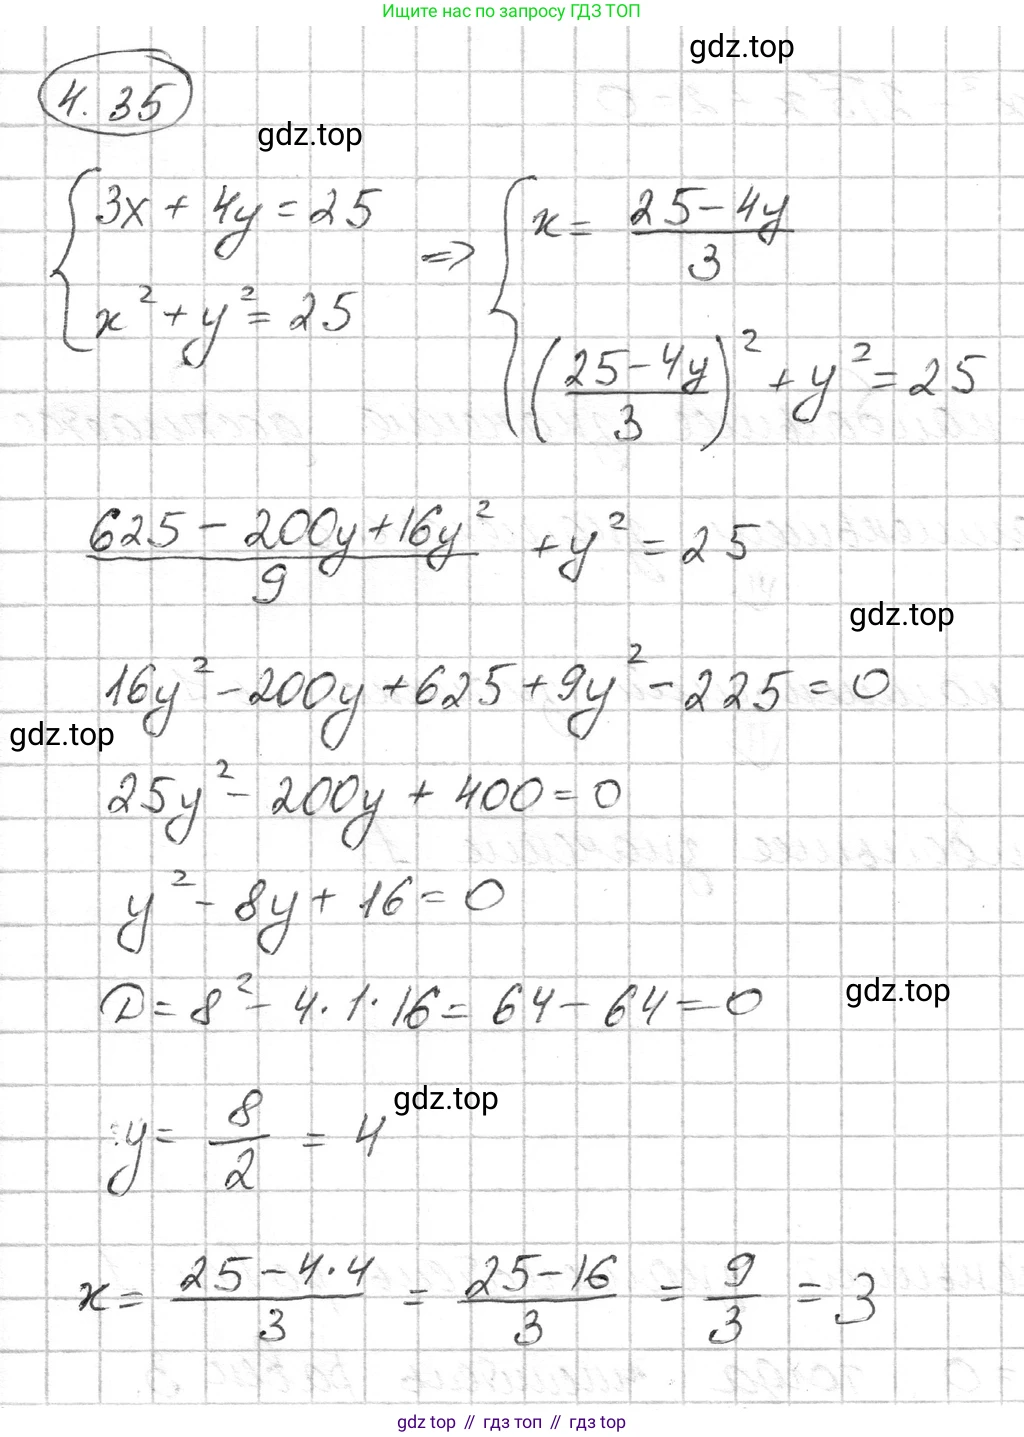 Ищите нас по запросу ГДЗ ТОП
gdz.top
4.35
gdz.top
{ 3x + 4y = 25
x² + y² = 25
=> { x = (25 - 4y)/3
((25 - 4y)/3)² + y² = 25
(625 - 200y + 16y²)/9 + y² = 25
gdz.top
16y² - 200y + 625 + 9y² - 225 = 0
gdz.top
25y² - 200y + 400 = 0
y² - 8y + 16 = 0
D = 8² - 4·1·16 = 64 - 64 = 0
gdz.top
y = 8/2 = 4
gdz.top
x = (25 - 4·4)/3 = (25 - 16)/3 = 9/3 = 3
gdz top // гдз топ // gdz top